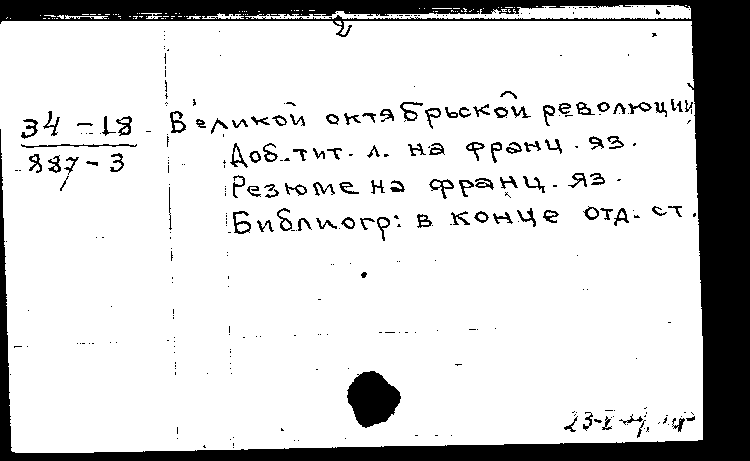 2
34-18 Великой октябрьской революции
887-3 Доб. тит. л. на франц. яз.
Резюме на франц. яз.
Библиогр: в конце отд. ст.